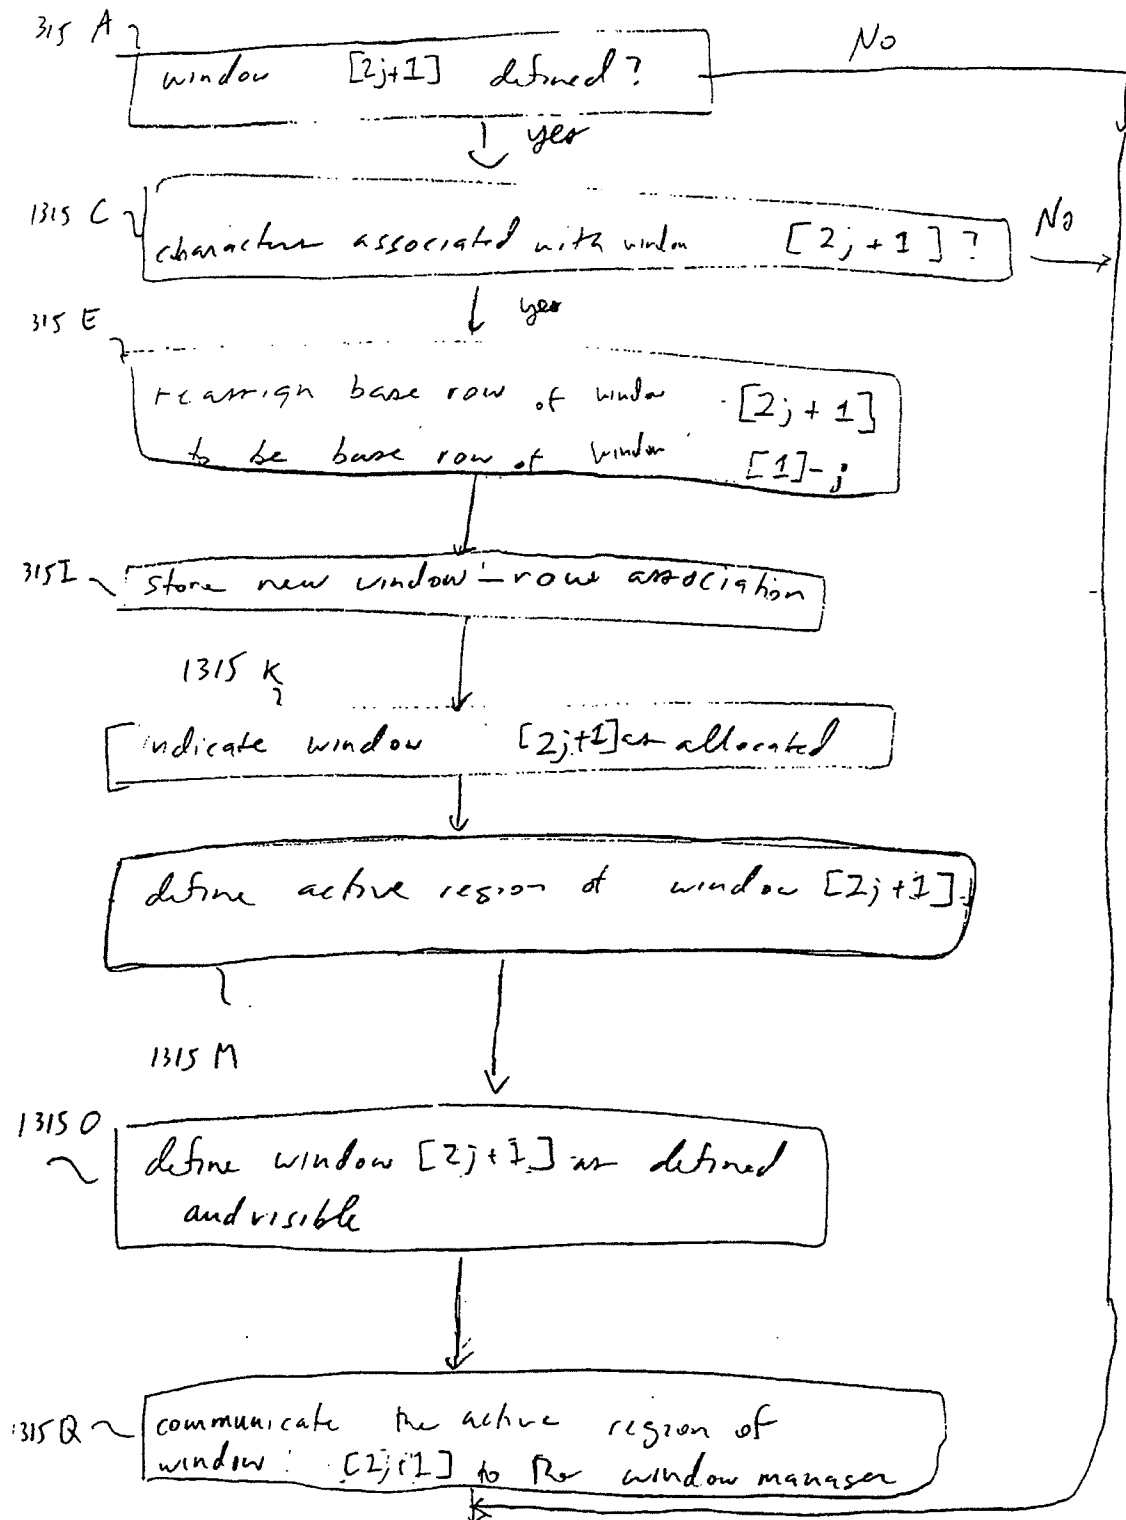 315 A
No
window [2j+1] defined?
yes
1315 C
No
characters associated with window [2j+1]?
yes
315 E
reassign base row of window [2j+1]
to be base row of window [1]-j
315I
store new window-row association
1315 K
indicate window [2j+1] as allocated
define active region of window [2j+1]
1315 M
1315 O
define window [2j+1] as defined
and visible
1315Q
communicate the active region of
window [2j+1] to the window manager